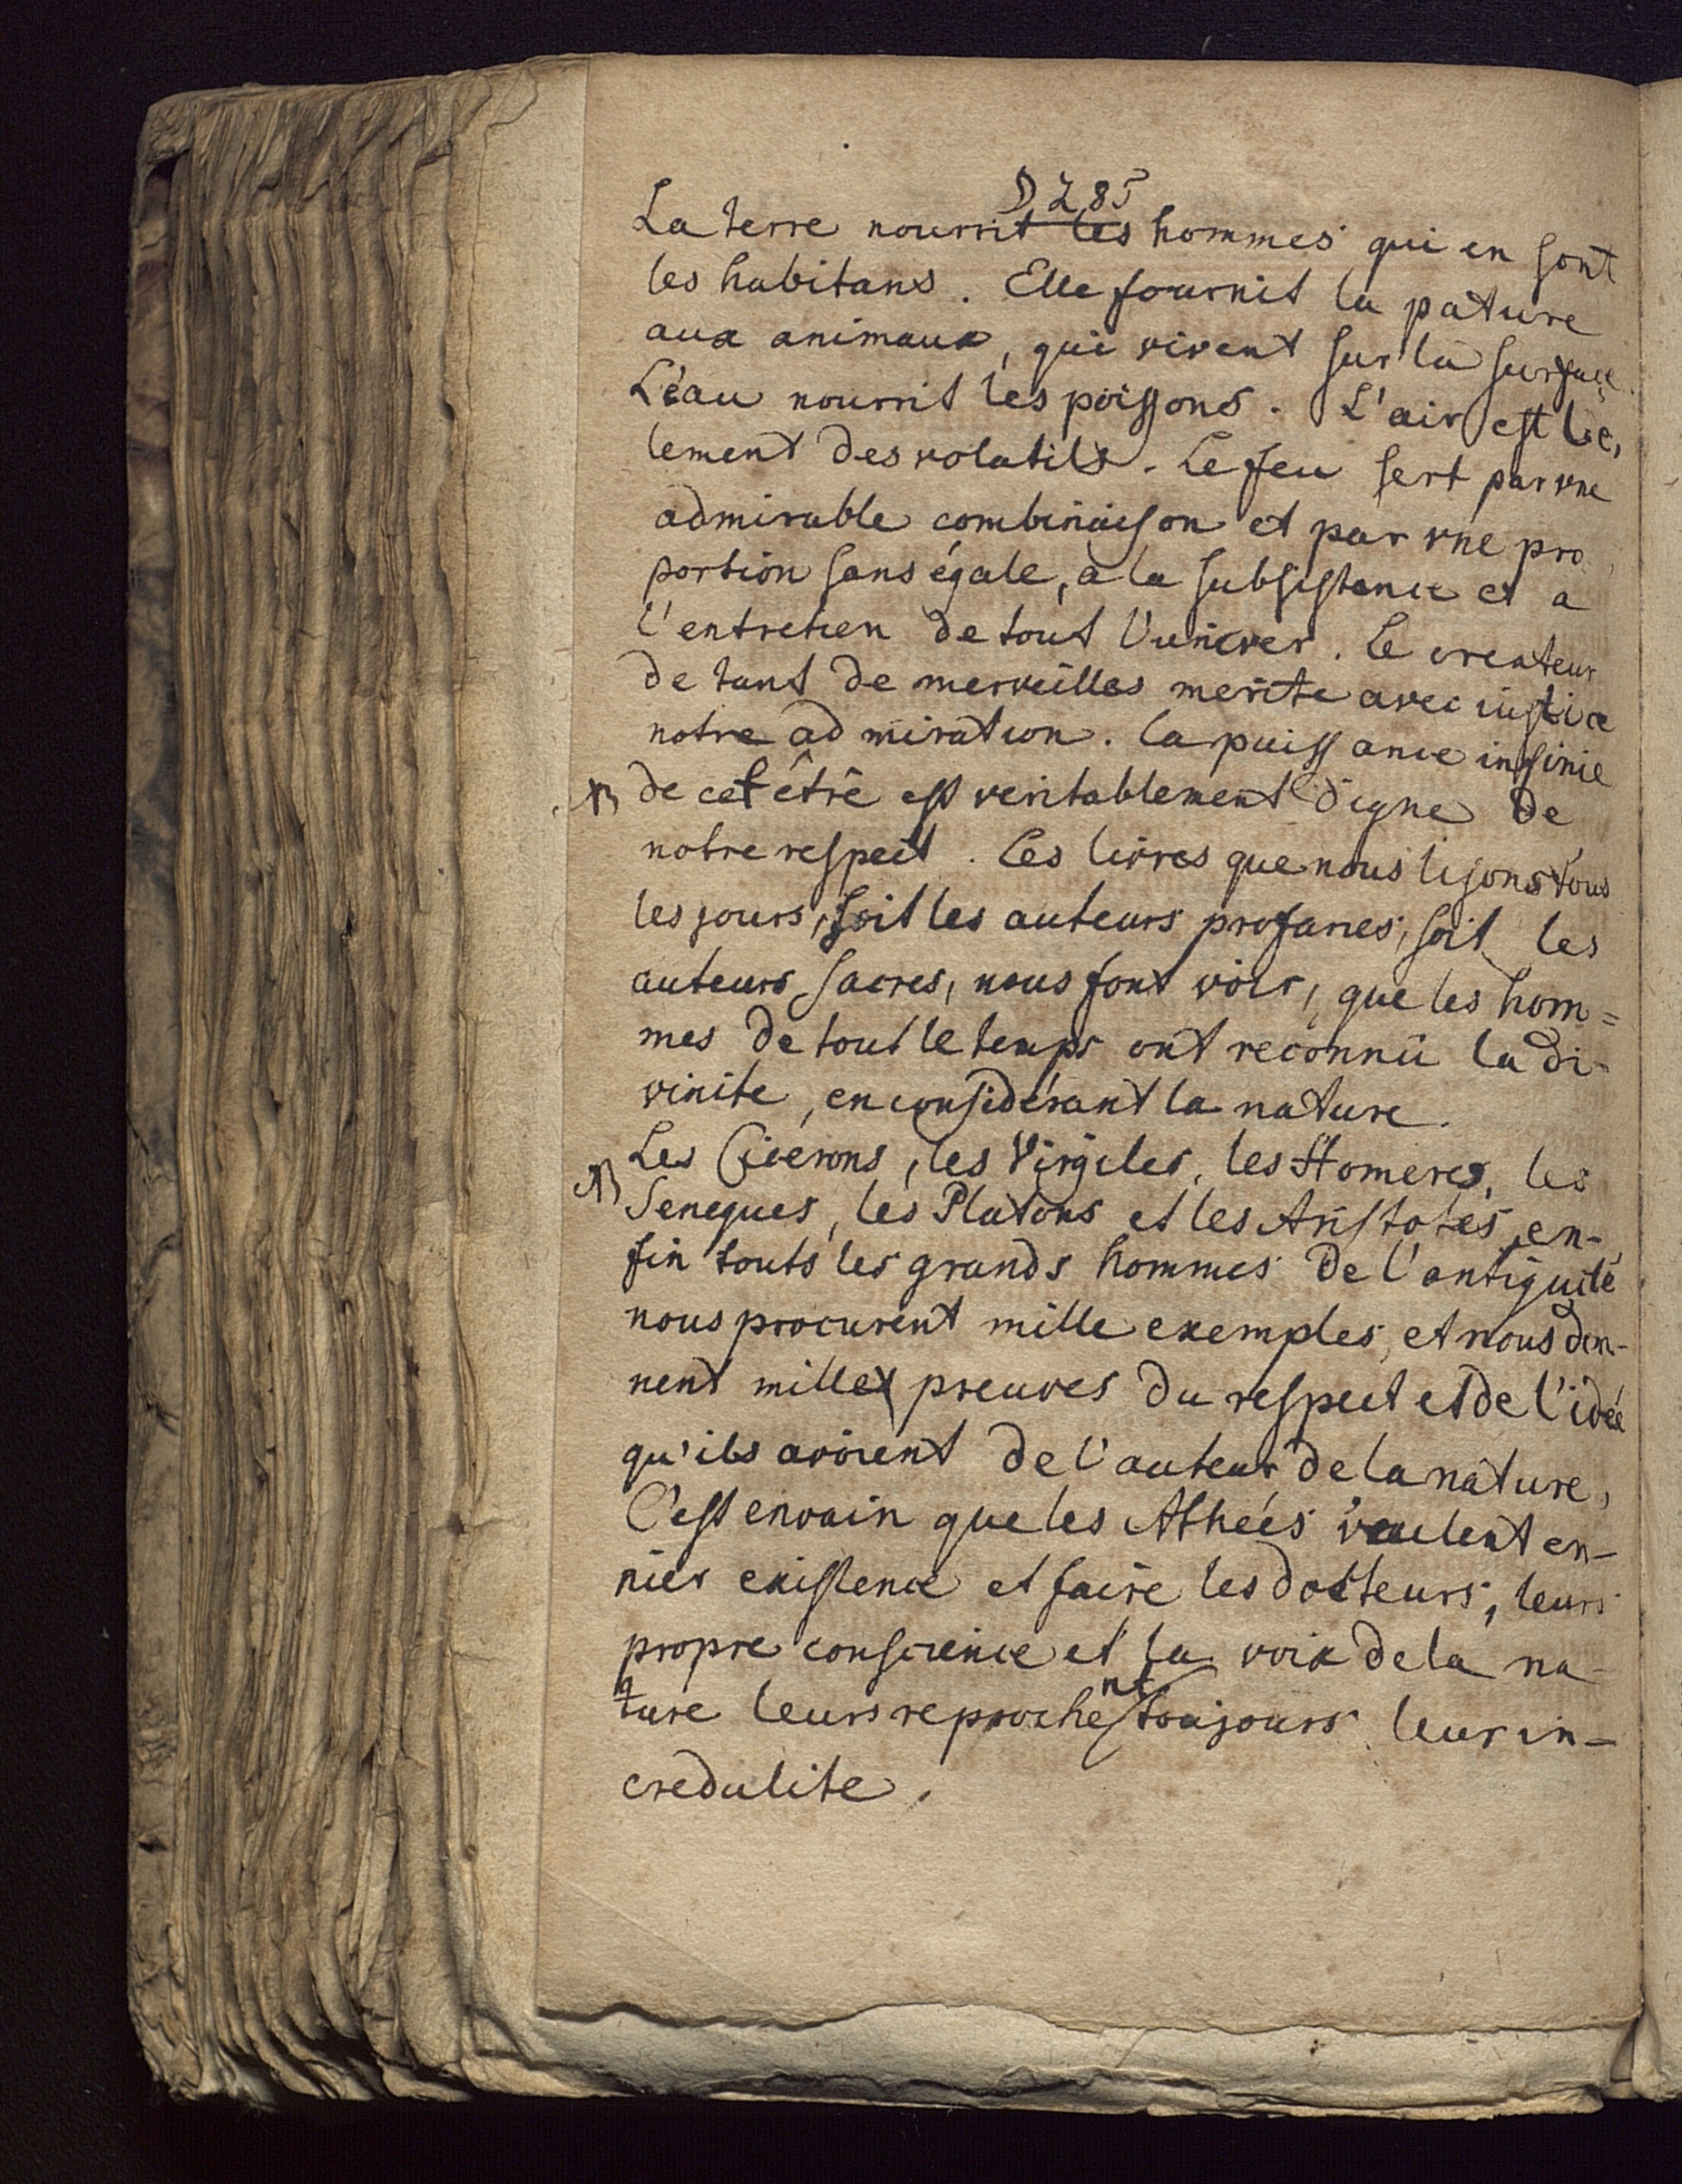 D 285
La terre nourrit les hommes qui en sont
les habitans. Elle fournit la pâture
aux animaux, qui vivent sur la surface.
L'éau nourrit les poissons. L'air est l'é,
lement des volatils. Le feu sert par vne
admirable combinaison et par vne pro
portion sans égale, a la subsistence et a
l'entretien de tout l'univer. Le createur
de tant de merveilles merite avec iustice
notre admiration. La puissance infinie
de cet être est veritablement digne de
notre respect. Les livres que nous lisons tous
les jours, soit les auteurs profanes, soit les
auteurs sacres, nous font voir, que les hom=
mes de tout le temps ont reconnu la di-
vinite, en considérant la nature.
Les Cicerons, les Virgiles, les Homeres, les
Seneques, les Platons et les Aristotes, en-
fin touts les grands hommes de l'antiquité
nous procurent mille exemples, et nous don-
nent mille preuves du respect et de l'idée
qu'ils avoient de l'auteur de la nature,
C'est envain que les Atheés veulent en-
nier existence et faire les docteurs, leurs
propre conscience et la voix de la na-
ture leurs reprochent toujours leur in-
credulite.